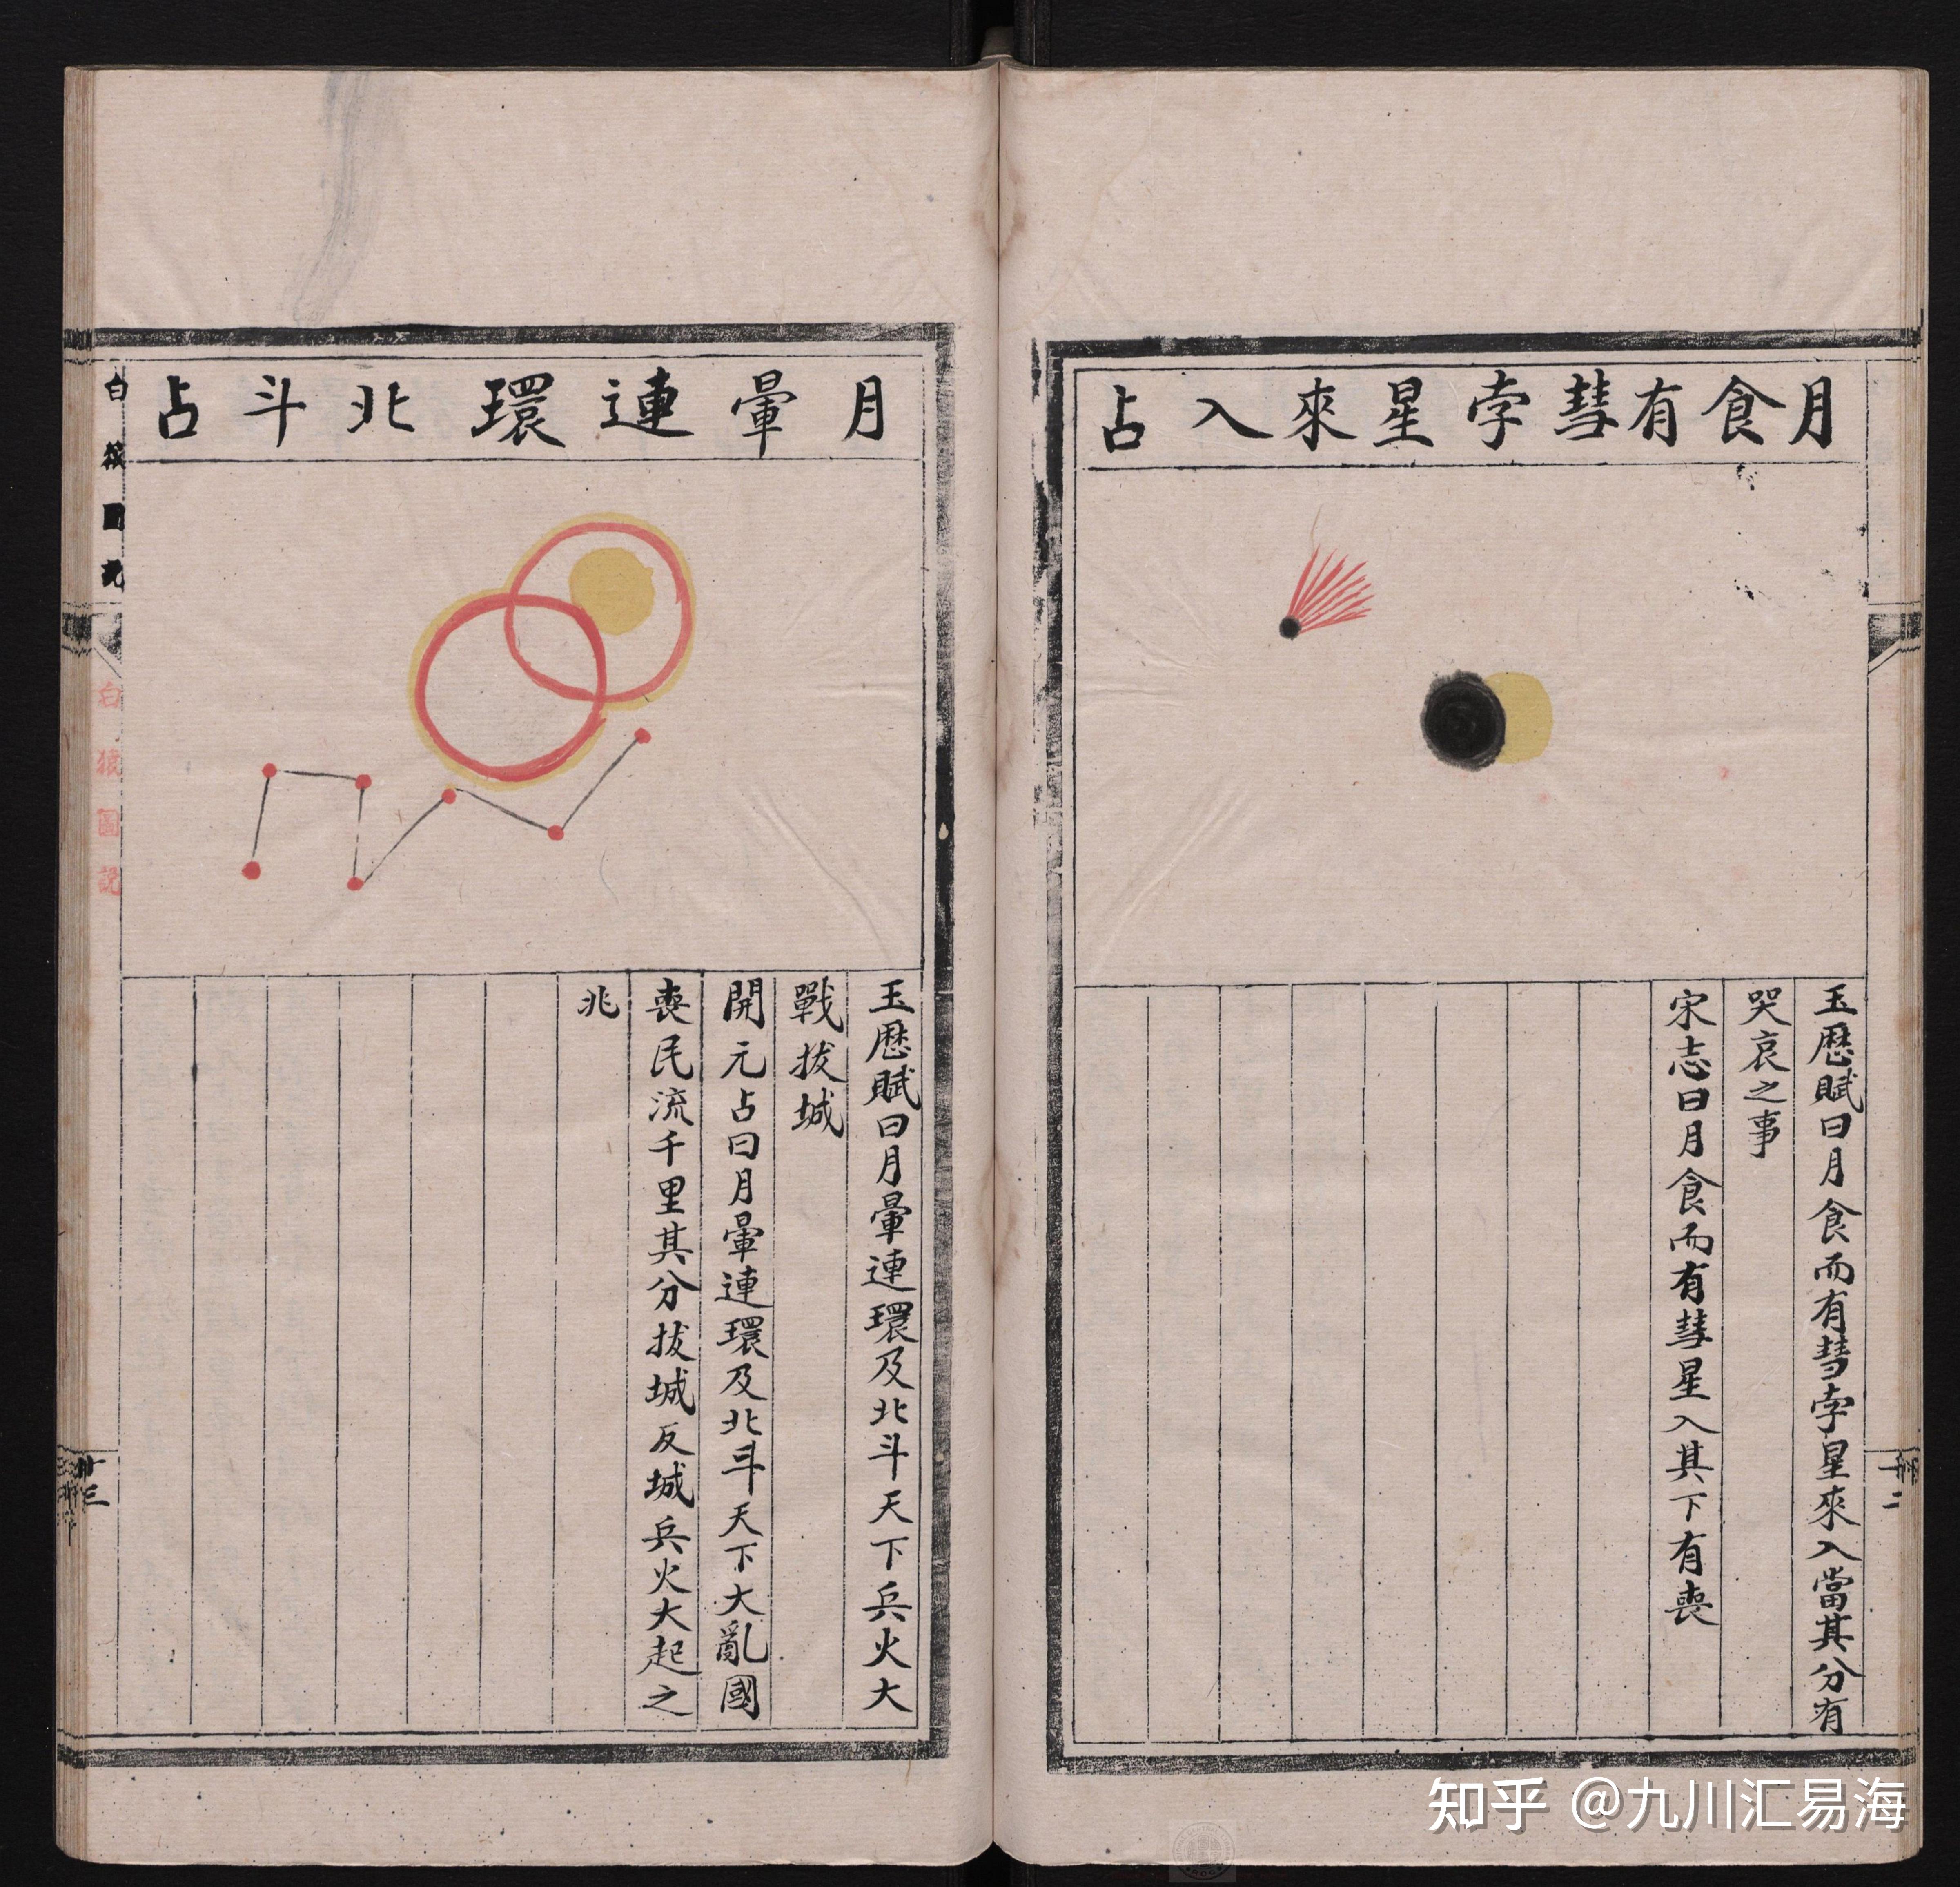 月食有彗孛星來入占
玉歷賦曰月食而有彗孛星來入當其分有
哭哀之事
宋志曰月食而有彗星入其下有喪
月暈連環北斗占
玉歷賦曰月暈連環及北斗天下兵火大
戰拔城
開元占曰月暈連環及北斗天下大亂國
喪民流千里其分拔城反城兵火大起之
兆
白猿圖說
白猿圖說
卅三
知乎 @九川汇易海